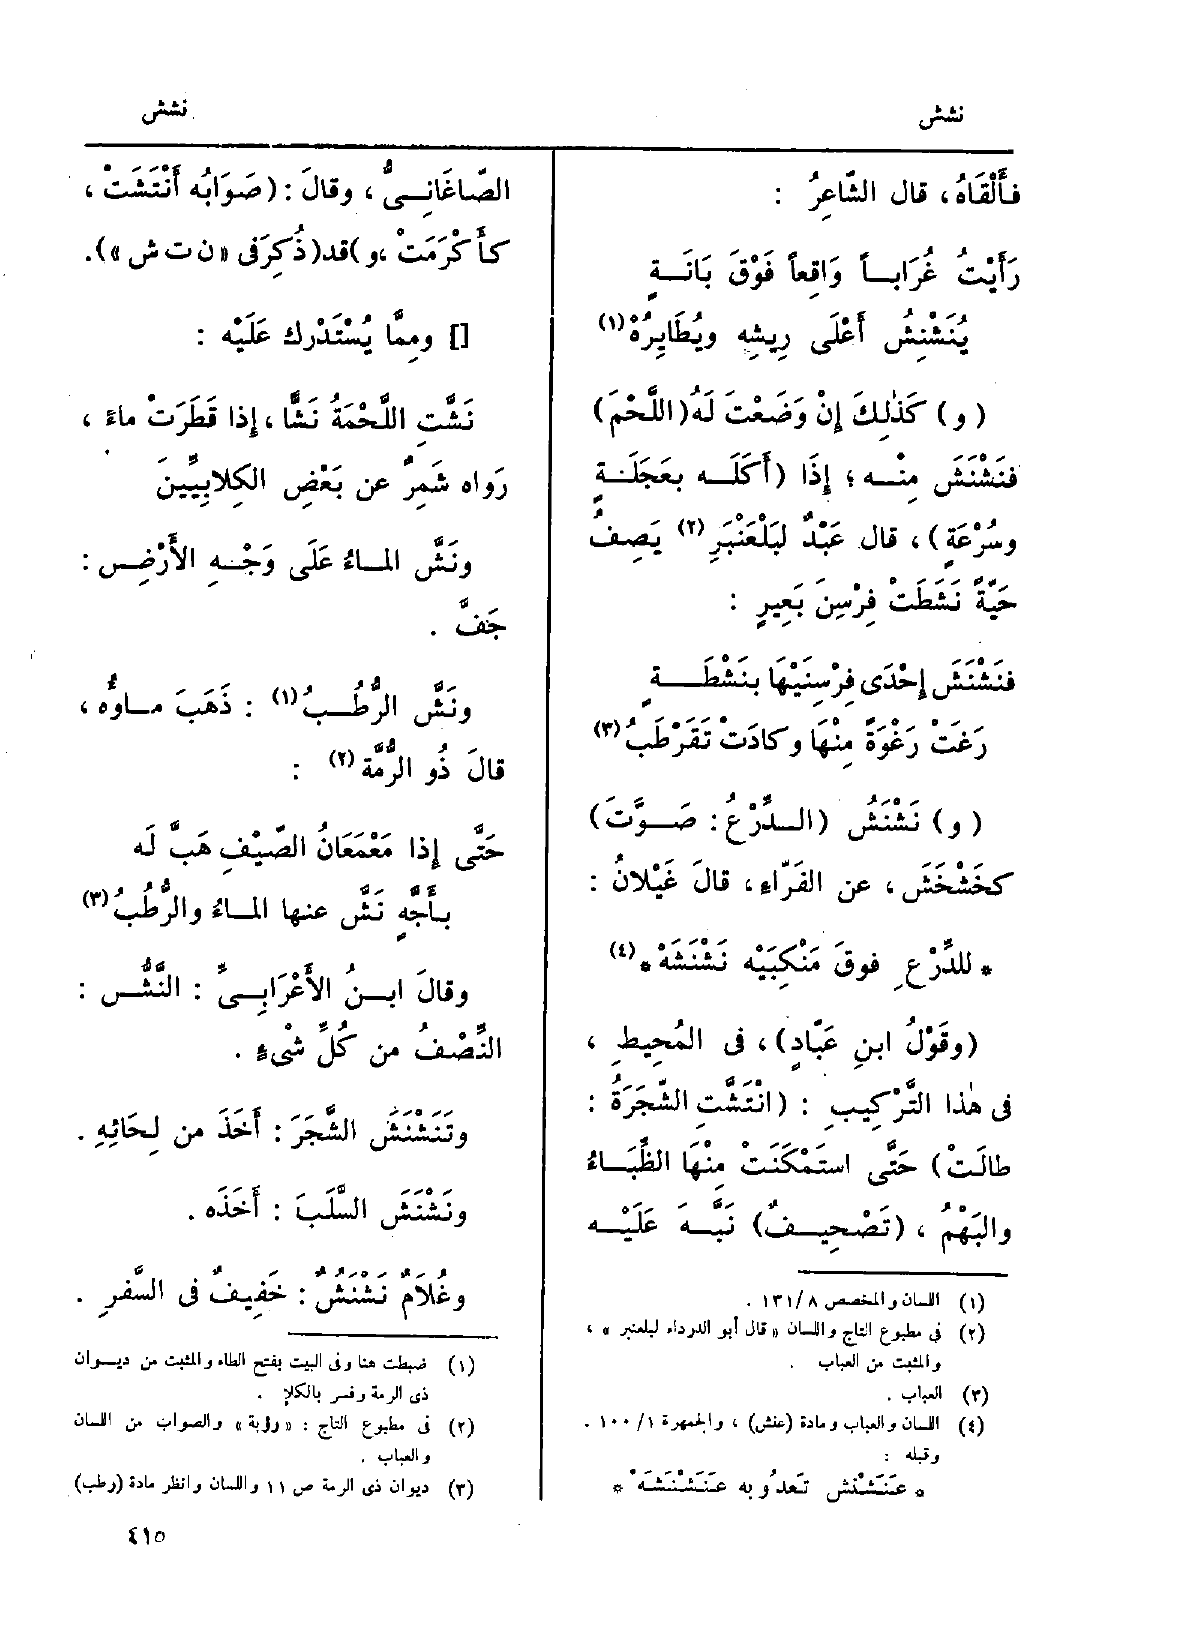 نشش
نشش
فأَلْقَاهُ، قال الشّاعِرُ :
رَأَيْتُ غُرَاباً وَاقِعاً فَوْقَ بَانَةٍ
يُنَشْنِشُ أَعْلَى رِيشِهِ ويُطَايِرُهْ (١)
(و) كَذٰلِكَ إِنْ وَضَعْتَ لَهُ (اللَّحْمَ)
فنَشْنَشَ مِنْه ؛ إِذَا (أَكَلَه بعَجَلَةٍ
وسُرْعَةٍ)، قال عَبْدٌ لبَلْعَنْبَرِ (٢) يَصِفُ
حَيَّةً نَشَطَتْ فِرْسِنَ بَعِيرٍ :
فنَشْنَشَ إِحْدَى فِرْسِنَيْهَا بنَشْطَةٍ
رَغَتْ رَغْوَةً مِنْهَا وكادَتْ تَقَرْطَبُ (٣)
(و) نَشْنَشُ (الدِّرْعُ : صَوَّتَ)
كخَشْخَشَ، عن الفَرّاءِ، قالَ غَيْلانُ :
* للدِّرْعِ فوقَ مَنْكِبَيْه نَشْنَشَهْ * (٤)
(وقَوْلُ ابنِ عَبّادٍ)، فى المُحِيطِ ،
فى هٰذا التَّرْكِيبِ : (انْتَشَّتِ الشَّجَرَةُ :
طالَتْ) حَتَّى اسْتَمْكَنَتْ مِنْهَا الظِّبَاءُ
والبَهْمُ ، (تَصْحِيفٌ) نَبَّهَ عَلَيْه
(١) اللسان والمخصص ٨ /١٣١ .
(٢) فى مطبوع التاج واللسان «قال أبو الدرداء لبلعنبر» ،
والمثبت من العباب .
(٣) العباب .
(٤) اللسان والعباب ومادة (عنش) ، والجمهرة ١ /١٠٠ .
وقبله :
* عَنَشْنَش تَعدُو به عَنَشْنَشَهْ *
الصّاغَانِىُّ ، وقالَ : (صَوَابُه أَنْتَشَتْ ،
كأَكْرَمَتْ ،و )قد(ذُكِرَ فى «ن ت ش»).
[] وممَّا يُسْتَدْرك عَلَيْه :
نَشَّتِ اللَّحْمَةُ نَشًّا ، إِذا قَطَرَتْ ماءً ،
رَواه شَمِرٌ عن بَعْضِ الكِلابِيِّينَ
ونَشَّ الماءُ عَلَى وَجْهِ الأَرْضِ :
جَفَّ .
ونَشَّ الرُّطُبُ (١) : ذَهَبَ ماؤُه ،
قالَ ذُو الرُّمَّة (٢) :
حَتَّى إِذا مَعْمَعَانُ الصَّيْفِ هَبَّ لَه
بأَجَّةٍ نَشَّ عنها الماءُ والرُّطُبُ (٣)
وقالَ ابنُ الأَعْرَابِىِّ : النَّشُّ :
النِّصْفُ من كُلِّ شْىءٍ .
وتَنَشْنَشَ الشَّجَرَ : أَخَذَ من لِحَائِهِ .
ونَشْنَشَ السَّلَبَ : أَخَذَه .
وغُلَامٌ نَشْنَشٌ : خَفِيفٌ فى السَّفَرِ .
(١) ضبطت هنا وفى البيت بفتح الطاء والمثبت من ديوان
ذى الرمة وفسر بالكلإ .
(٢) فى مطبوع التاج : «رؤبة» والصواب من اللسان
والعباب .
(٣) ديوان ذى الرمة ص ١١ واللسان وانظر مادة (رطب)
٤١٥